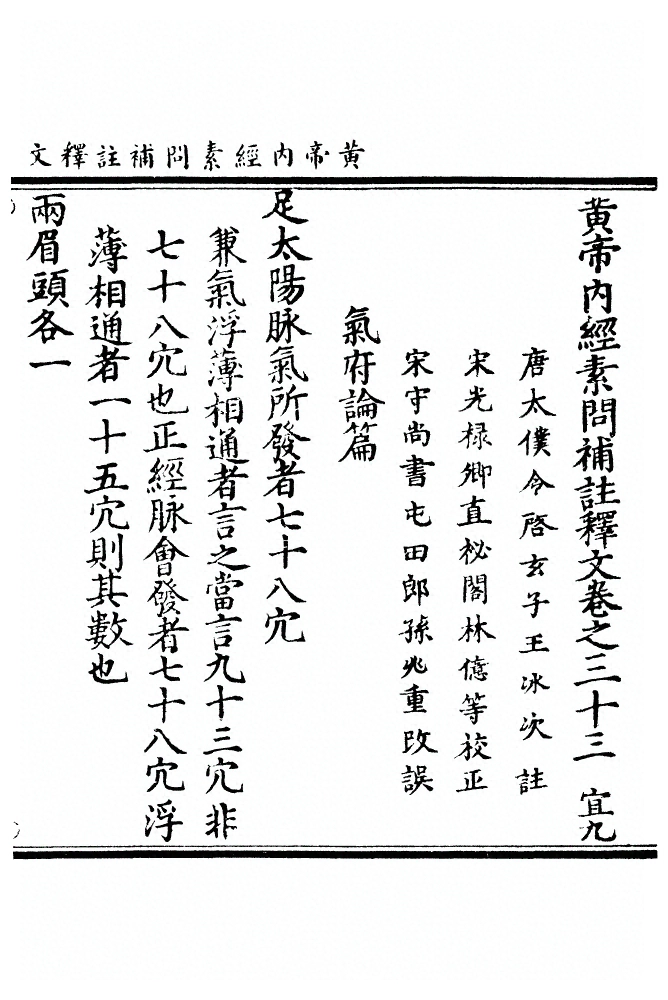 黄帝内經素問補註釋文
黄帝内經素問補註釋文卷之三十三 宜九
唐太僕令啓玄子王冰次註
宋光禄卿直秘閣林億等校正
宋守尚書屯田郎孫兆重改誤
氣府論篇
足太陽脉氣所發者七十八穴
兼氣浮薄相通者言之當言九十三穴非
七十八穴也正經脉會發者七十八穴浮
薄相通者一十五穴則其數也
兩眉頭各一